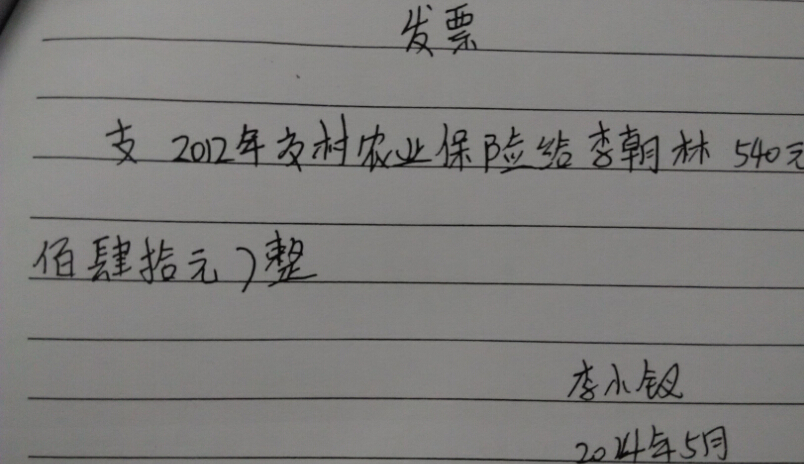 发票
支 2012年交村农业保险给李朝林 540元
佰肆拾元)整
李小钗
2014年5月